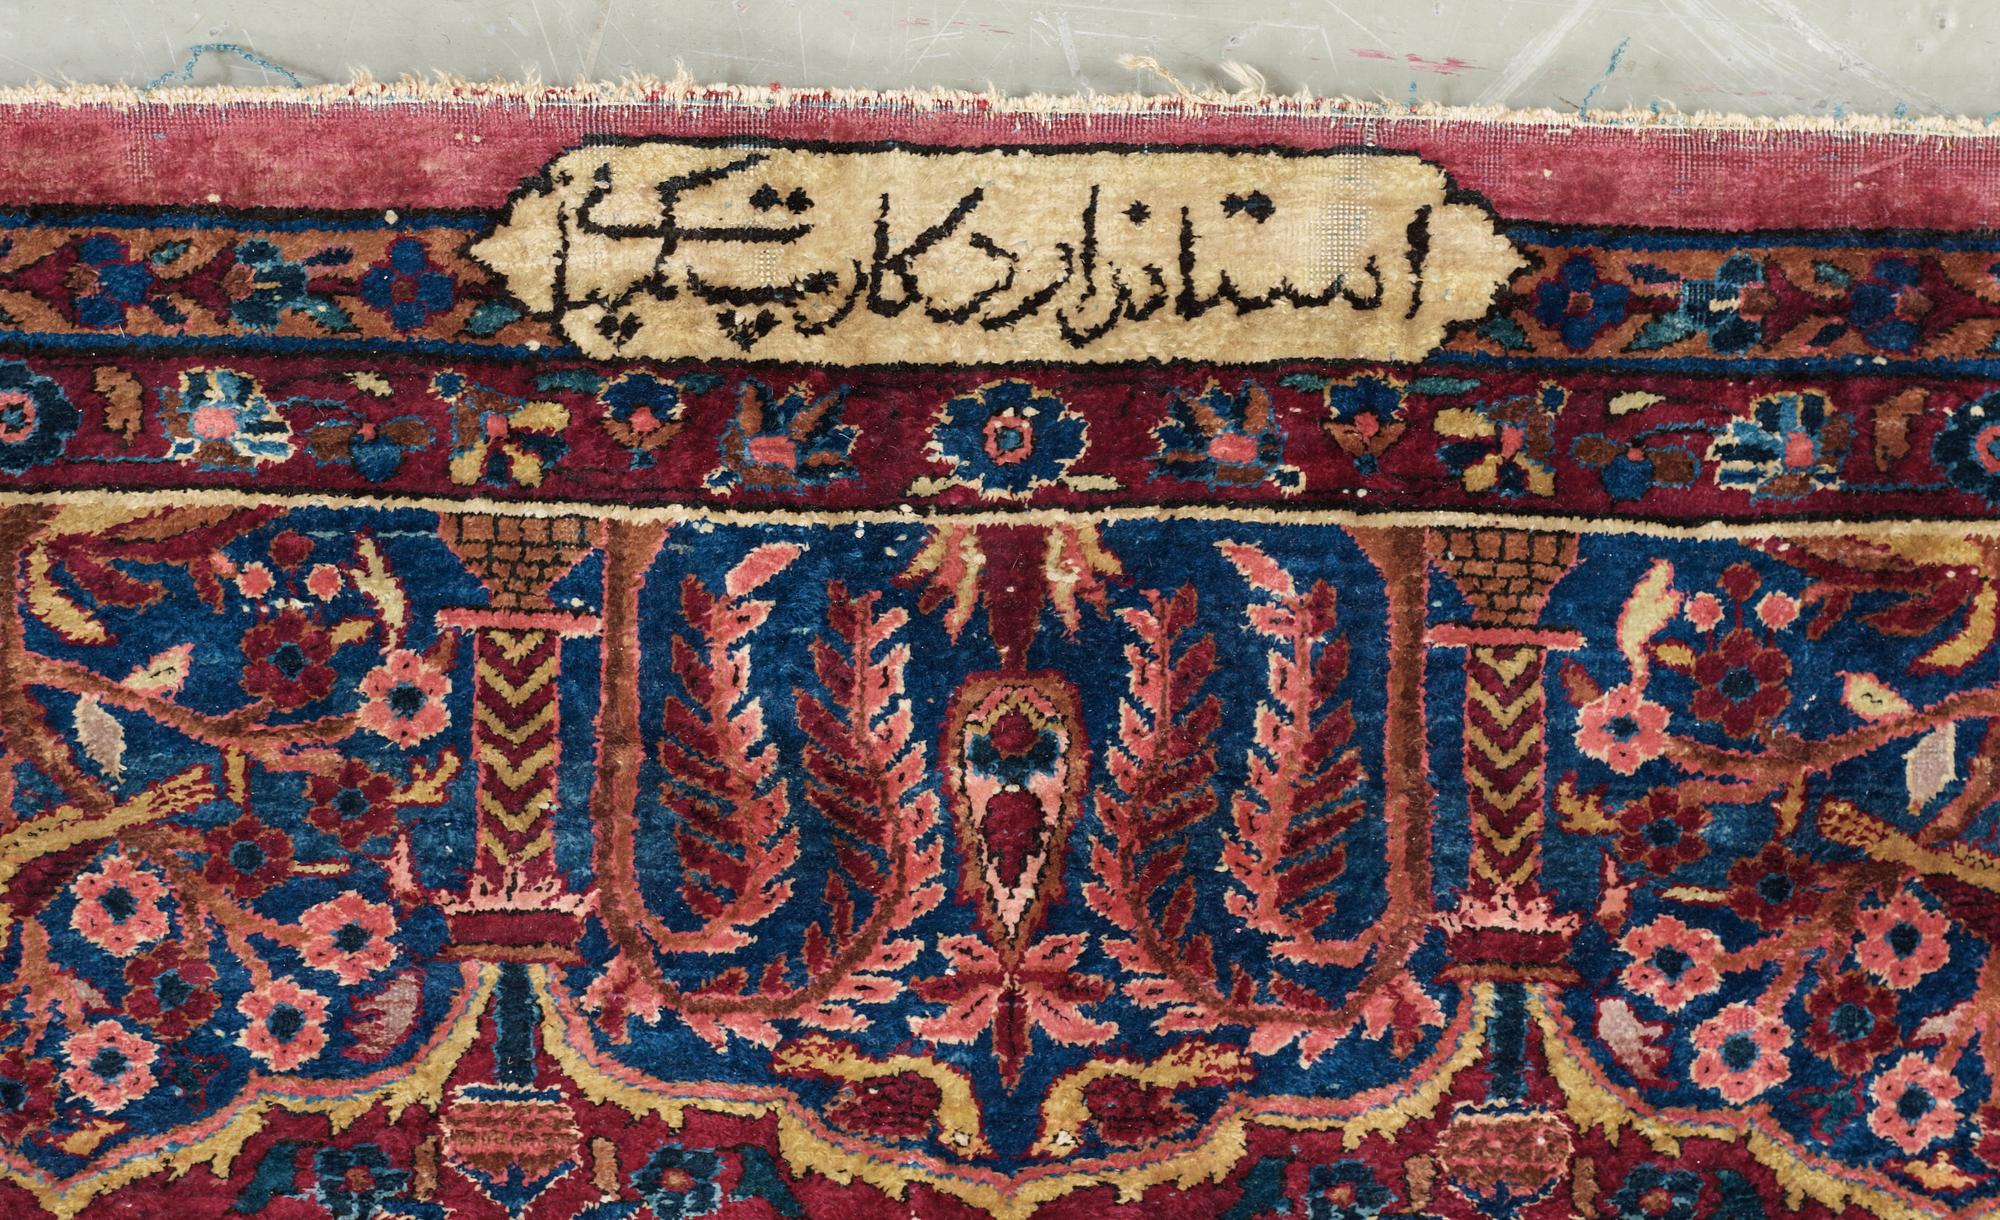 استاندارد کارپت کمپانی